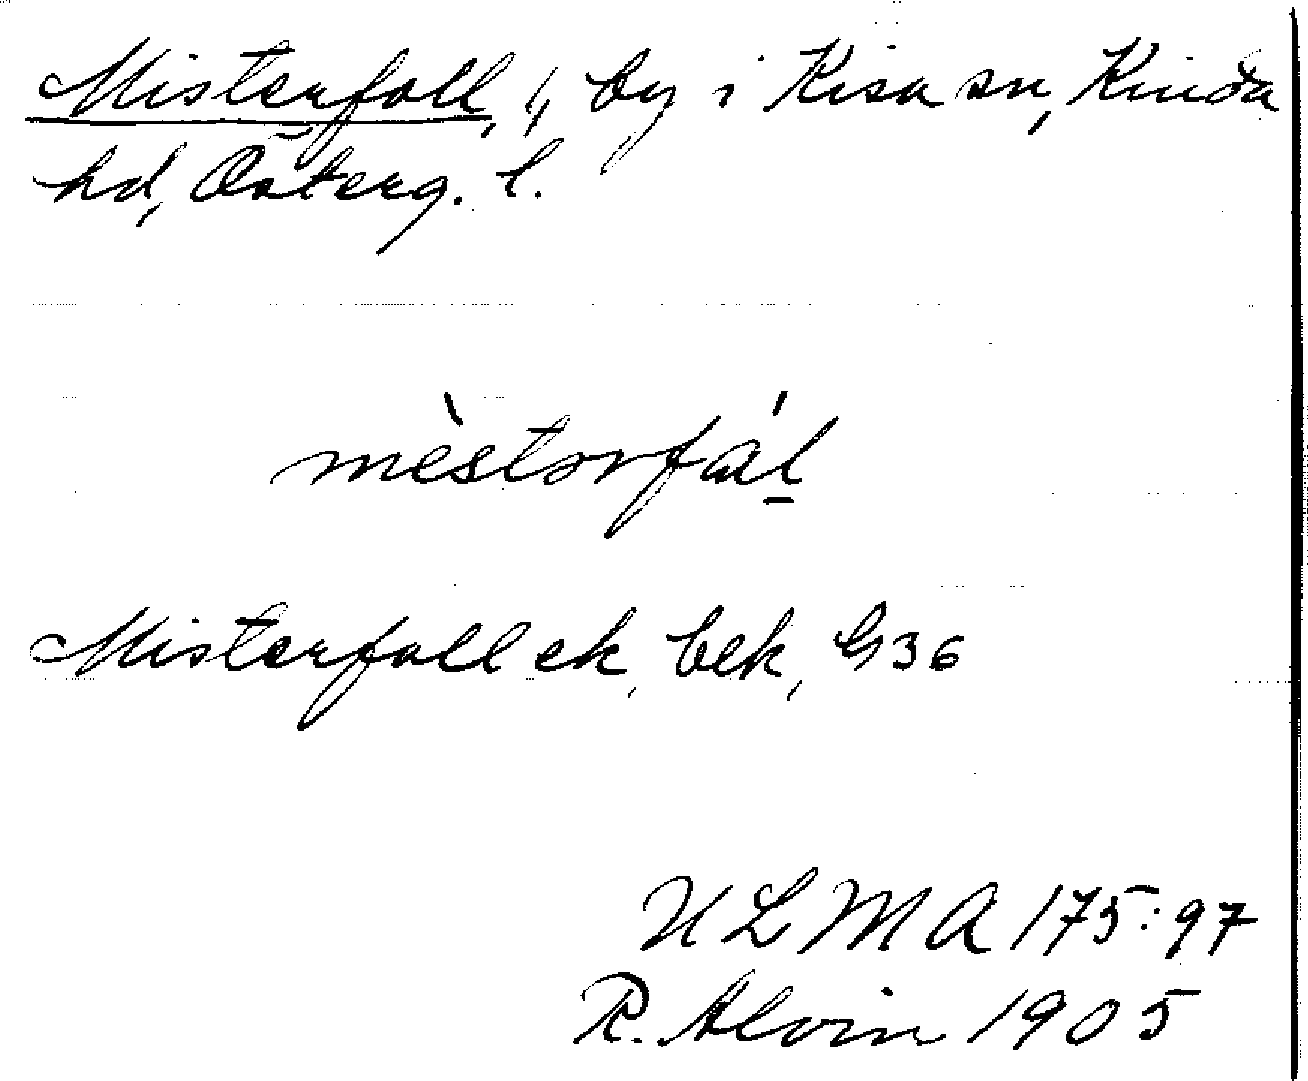 Misterfall, by i Kisa sn, Kinda
hd, Österg. l.
mèstərfál
Misterfall ek, bek, G36
ULMA 175:97
R. Alvin 1905